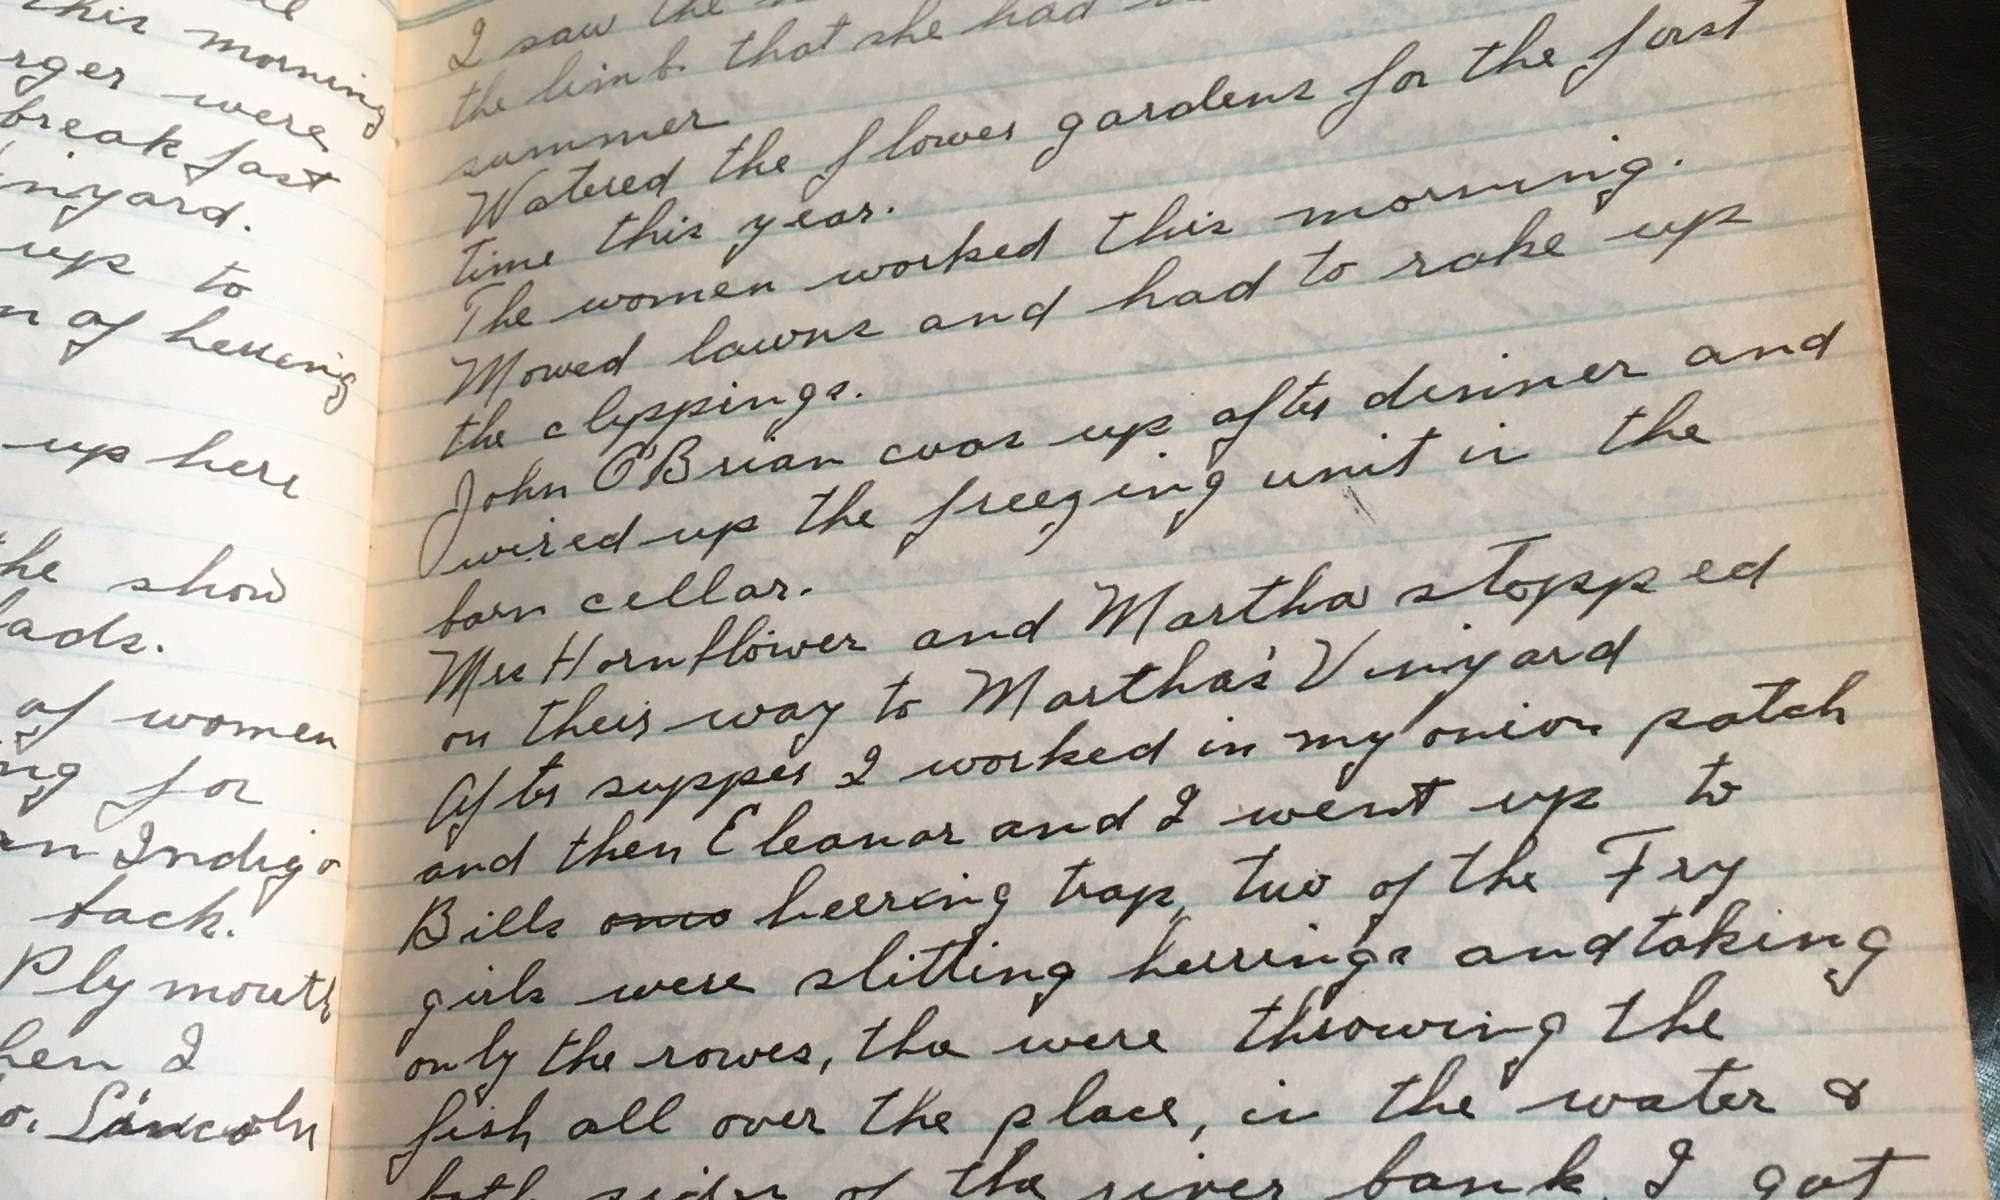 this morning
rger were
breakfast
inyard.
up to
n of herring
up here
the show
lads.
of women
ng for
an Indigo
back.
Plymouth
hen I
o. Lincoln
I saw the
the limb that she had
summer
Watered the flower gardens for the first
time this year.
The women worked this morning.
Mowed lawns and had to rake up
the clyppings.
John O'Brian cvas up after dinner and
wired up the freezing unit in the
barn cellar.
Mrs Hornflower and Martha stopped
on their way to Martha's Vinyard
After supper I worked in my onion patch
and then Eleanor and I went up to
Bills herring trap, two of the Fry
girls were slitting herrings and taking
only the rowes, tha were throwing the
fish all over the place, in the water &
both sides of the river bank, I got